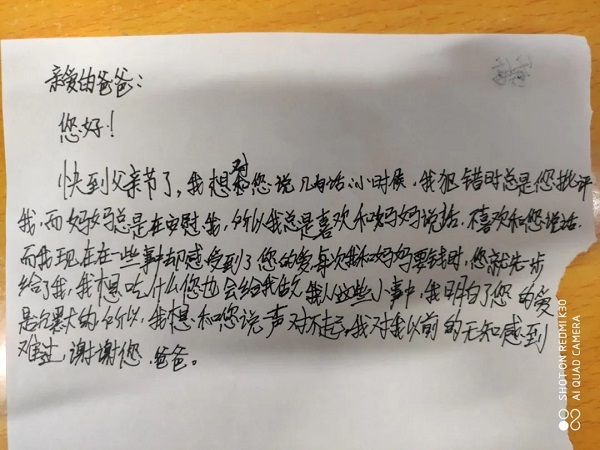 亲爱的爸爸：
您好！
快到父亲节了，我想对您说几句话：小时候，我犯错时总是您批评
我，而妈妈总是在安慰我，所以我总是喜欢和妈妈说话，不喜欢和您说话，
而我现在在一些事中却感受到了您的爱，每次我和妈妈要钱时，您就先一步
给了我，我想吃什么您也会给我做，我从这些小事中，我明白了您的爱
是深大的，所以，我想和您说声对不起，我对我以前的无知感到
难过，谢谢您，爸爸。
SHOT ON REDMI K30
AI QUAD CAMERA